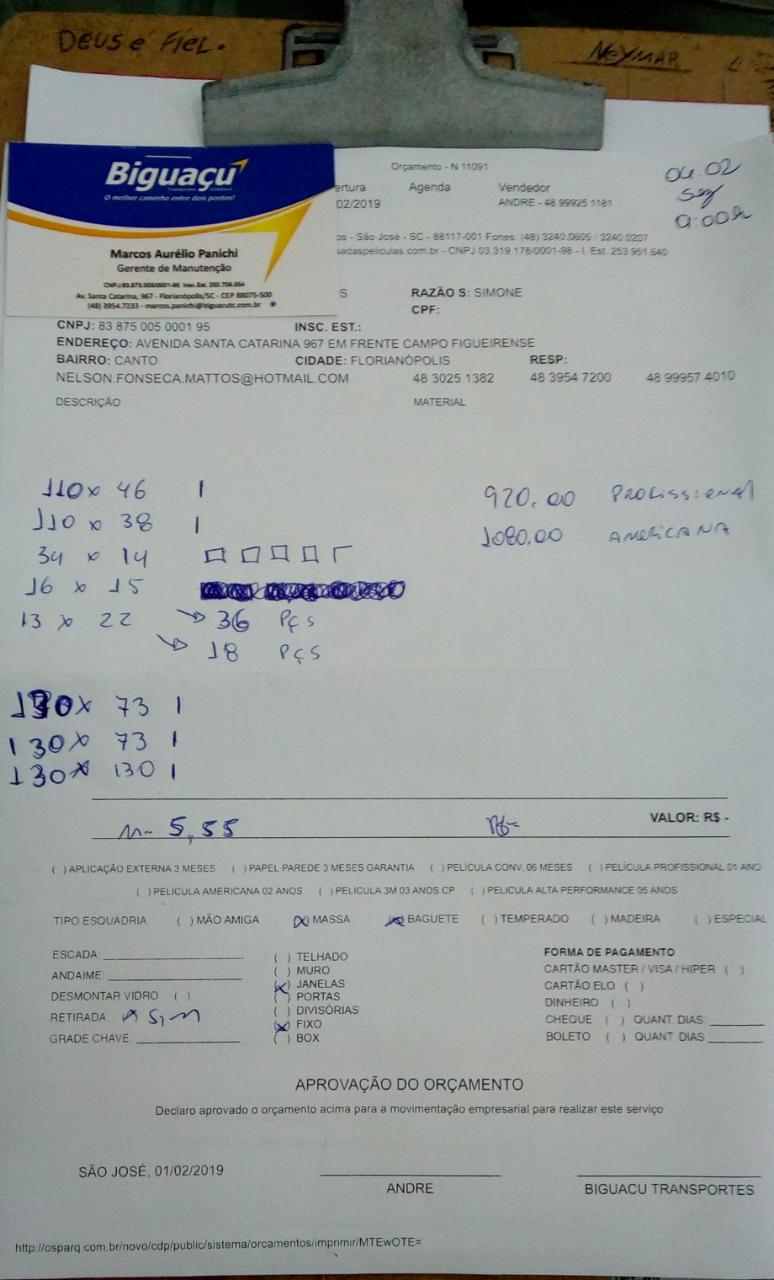 DEUS é FIEL.
NEYMAR
Biguaçu
O melhor caminho entre dois pontos!
Marcos Aurélio Panichi
Gerente de Manutenção
CNPJ: 83.875.005/0001-95 Insc. Est. 250.709.354
Av. Santa Catarina, 967 - Florianópolis/SC - CEP 88075-500
(48) 3954.7233 - marcos.panichi@biguacutc.com.br
Orçamento - N 11091
04.02
seg
9:00h
ertura Agenda Vendedor
02/2019 ANDRE - 48 99925 1181
os - São José - SC - 88117-001 Fones: (48) 3240.0605 / 3240.0207
sadaspeliculas.com.br - CNPJ 03.319.178/0001-98 - I. Est. 253.951.640
S RAZÃO S: SIMONE
CPF:
CNPJ: 83 875 005 0001 95 INSC. EST.:
ENDEREÇO: AVENIDA SANTA CATARINA 967 EM FRENTE CAMPO FIGUEIRENSE
BAIRRO: CANTO CIDADE: FLORIANÓPOLIS RESP:
NELSON.FONSECA.MATTOS@HOTMAIL.COM 48 3025 1382 48 3954 7200 48 99957 4010
DESCRIÇÃO MATERIAL
110 x 46 1 920,00 PROFISSIONAL
110 x 38 1 1080,00 AMERICANA
34 x 14
16 x 15
13 x 22 → 36 Pçs
→ 18 Pçs
130 x 73 1
130 x 73 1
130 x 130 1
m- 5,55 VALOR: R$ -
( ) APLICAÇÃO EXTERNA 3 MESES ( ) PAPEL PAREDE 3 MESES GARANTIA ( ) PELÍCULA CONV. 06 MESES ( ) PELÍCULA PROFISSIONAL 01 ANO
( ) PELÍCULA AMERICANA 02 ANOS ( ) PELICULA 3M 03 ANOS CP ( ) PELICULA ALTA PERFORMANCE 05 ANOS
TIPO ESQUADRIA ( ) MÃO AMIGA (x) MASSA (x) BAGUETE ( ) TEMPERADO ( ) MADEIRA ( ) ESPECIAL
ESCADA: ( ) TELHADO FORMA DE PAGAMENTO
ANDAIME: ( ) MURO CARTÃO MASTER / VISA / HIPER ( )
DESMONTAR VIDRO ( ) (x) JANELAS CARTÃO ELO ( )
( ) PORTAS DINHEIRO ( )
RETIRADA: x Sim ( ) DIVISÓRIAS CHEQUE ( ) QUANT. DIAS:
(x) FIXO BOLETO ( ) QUANT. DIAS
GRADE CHAVE: ( ) BOX
APROVAÇÃO DO ORÇAMENTO
Declaro aprovado o orçamento acima para a movimentação empresarial para realizar este serviço
SÃO JOSÉ, 01/02/2019
ANDRE BIGUACU TRANSPORTES
http://osparq.com.br/novo/cdp/public/sistema/orcamentos/imprimir/MTEwOTE=